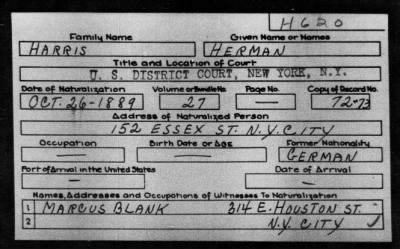 H620
Family Name Given Name or Names
HARRIS HERMAN
Title and Location of Court
U. S. DISTRICT COURT, NEW YORK, N.Y.
Date of Naturalization Volume or Bundle No. Page No. Copy of Record No.
OCT. 26-1889 27 — 72-73
Address of Naturalized Person
152 ESSEX ST. N.Y. CITY
Occupation Birth Date or Age Former Nationality
— — GERMAN
Port of Arrival in the United States Date of Arrival
— —
Names, Addresses and Occupations of Witnesses To Naturalization
1 MARCUS BLANK 314 E. HOUSTON ST.
2 N.Y. CITY ✓